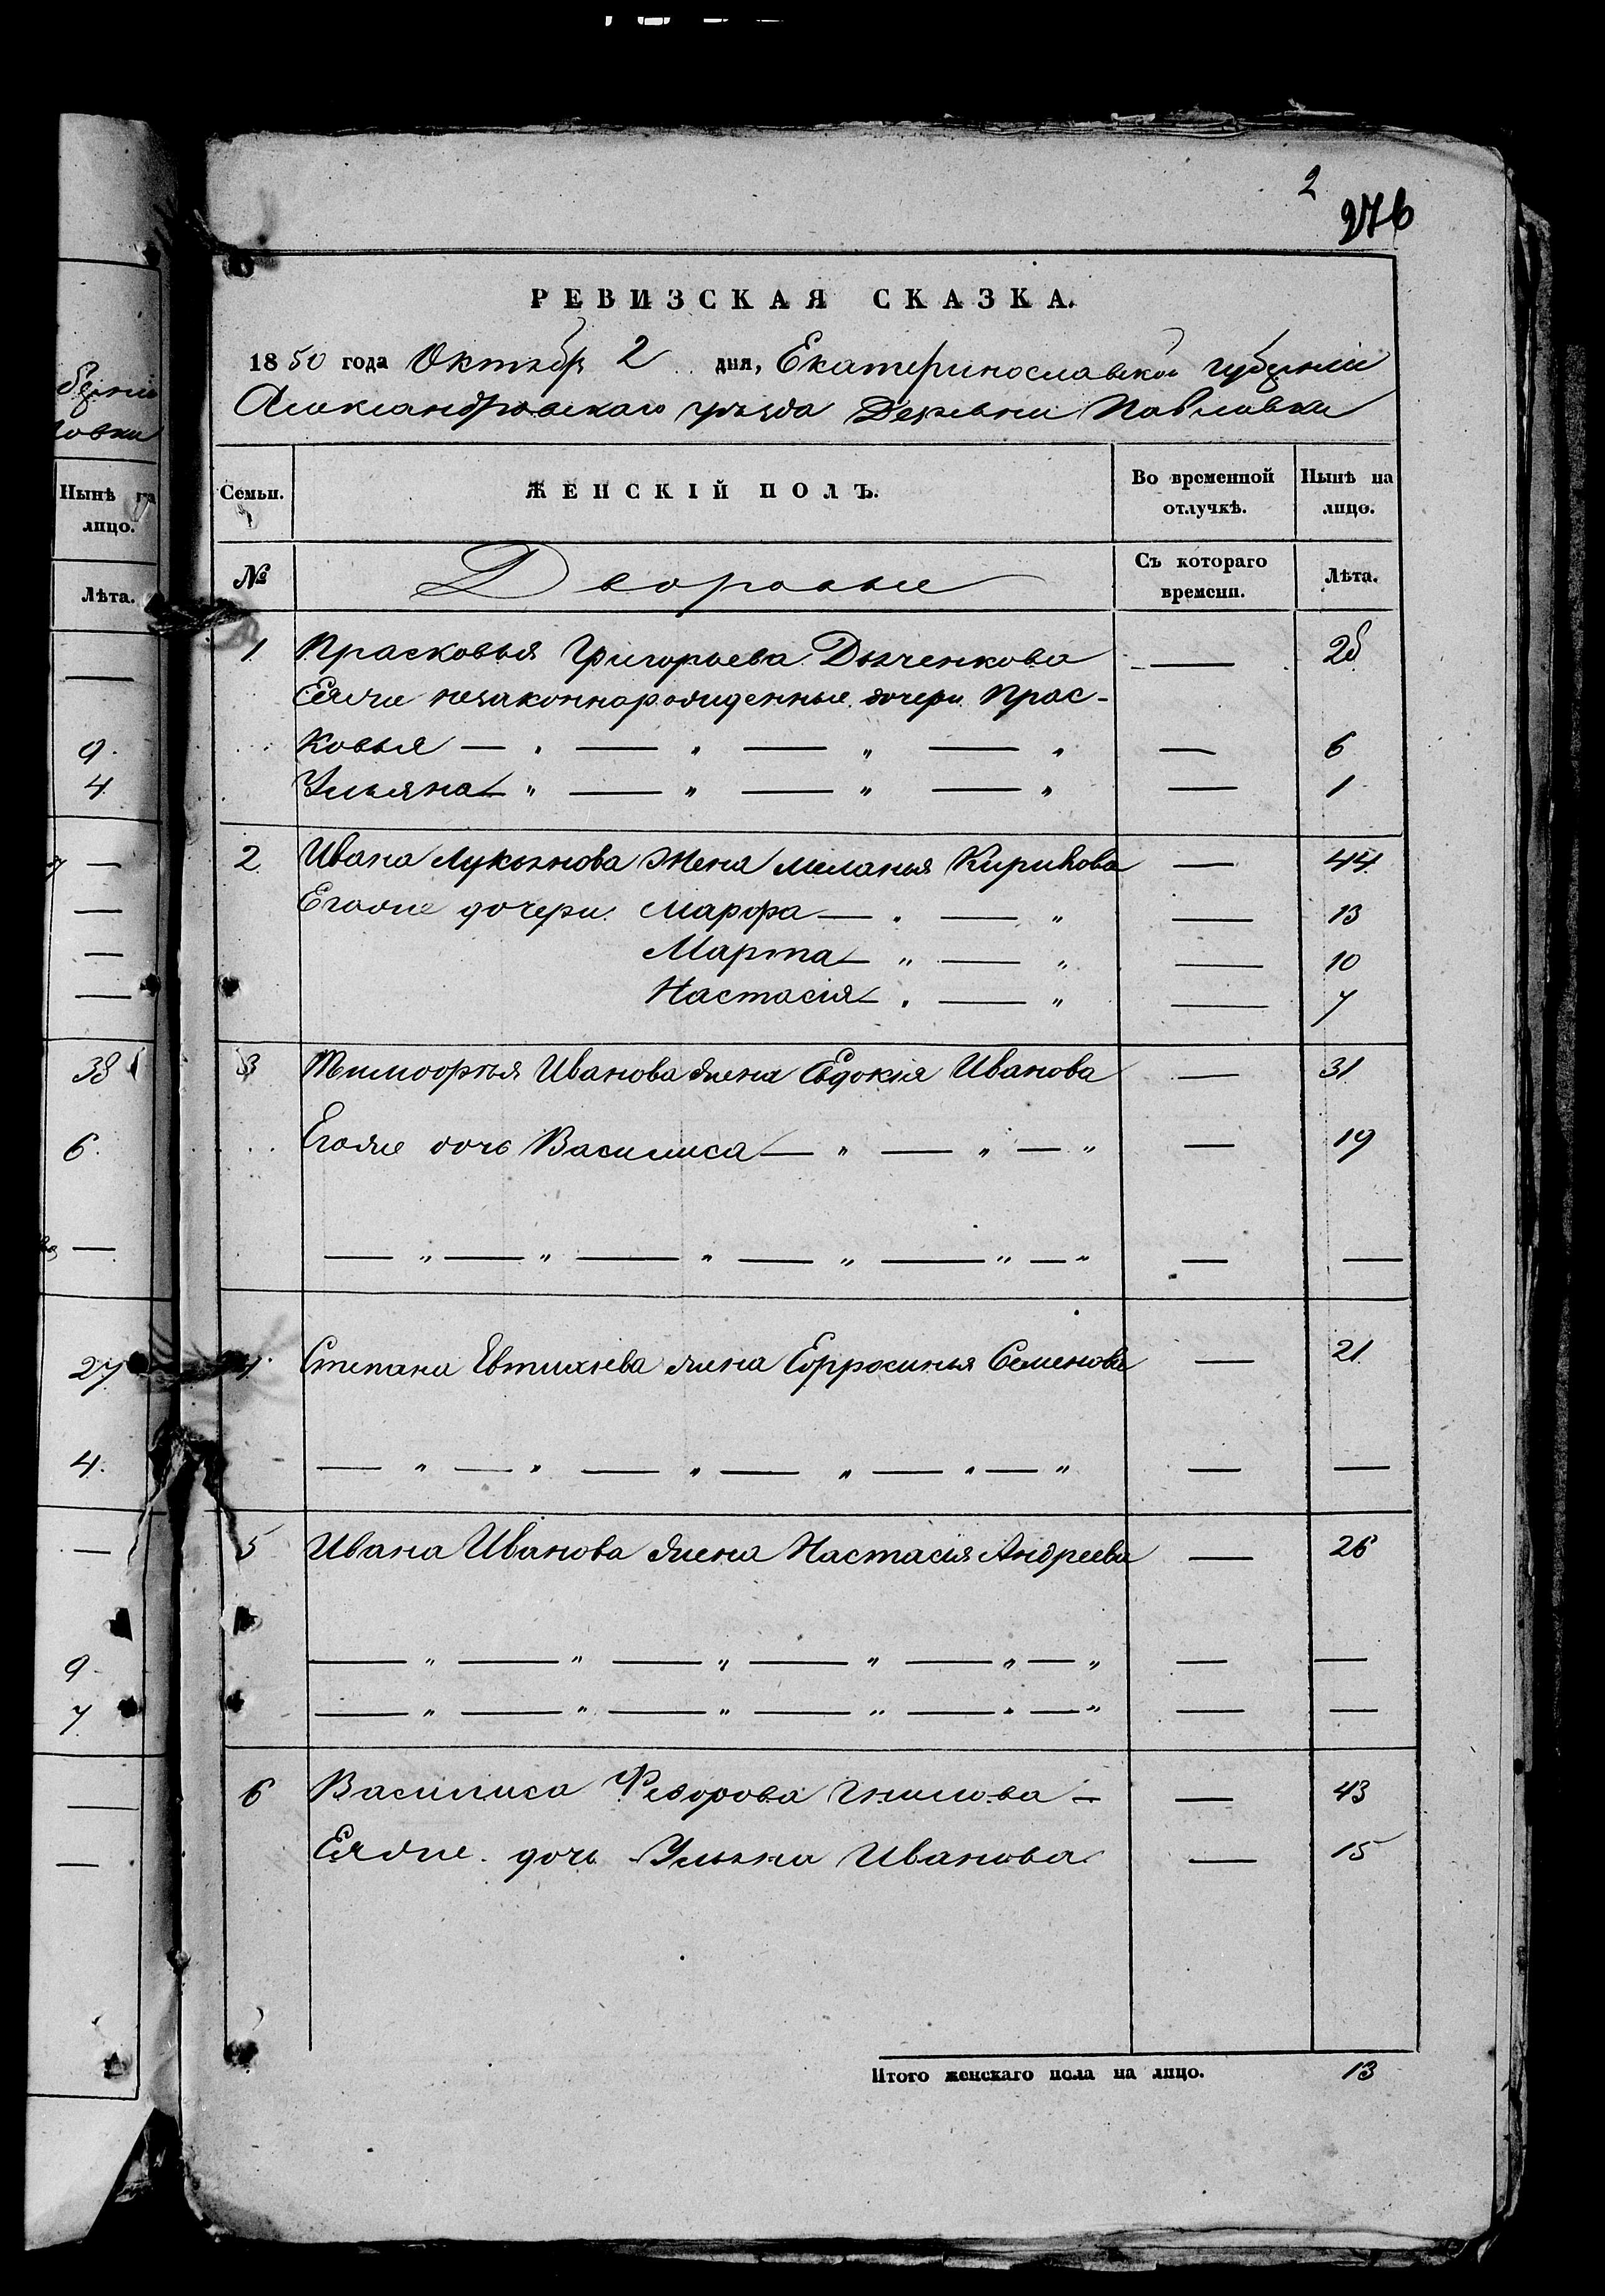 2
276
РЕВИЗСКАЯ СКАЗКА.
1850 года Октября 2 дня, Екатеринославской губерніи
Александровскаго уѣзда Деревни Павловки
Семьи. ЖЕНСКІЙ ПОЛЪ. Во временной отлучкѣ. Нынѣ на лицо.
№ Дворовые Съ котораго времени. Лѣта.
1 Прасковья Григорьева Дьяченкова — 28
Еяже незаконнорожденные дочери Прас-
ковья — " — " — " — " — 6
Ульяна — " — " — " — " — 1
2 Ивана Лукьянова Жена Меланья Кирикова — 44
Егоже дочери Марфа — " — " — 13
Марта — " — " — 10
Настасія — " — " — 7
3 Тимофѣя Иванова жена Евдокія Иванова — 31
Егоже дочь Василиса — " — " — " — 19
— " — " — " — " — " — " — —
4 Степана Евтихіева жена Ефросинья Семенова — 21
— " — " — " — " — " — " — —
5 Ивана Иванова жена Настасія Андреева — 26
— " — " — " — " — " — " — —
— " — " — " — " — " — " — —
6 Василиса Федорова Гнилова — — 43
Еяже дочь Ульяна Иванова — 15
Итого женскаго пола на лицо. 13
берніи
ловки
Нынѣ на
лицо.
Лѣта.
—
9
4
—
—
—
—
38
6
—
27
4
—
9
7
—
—